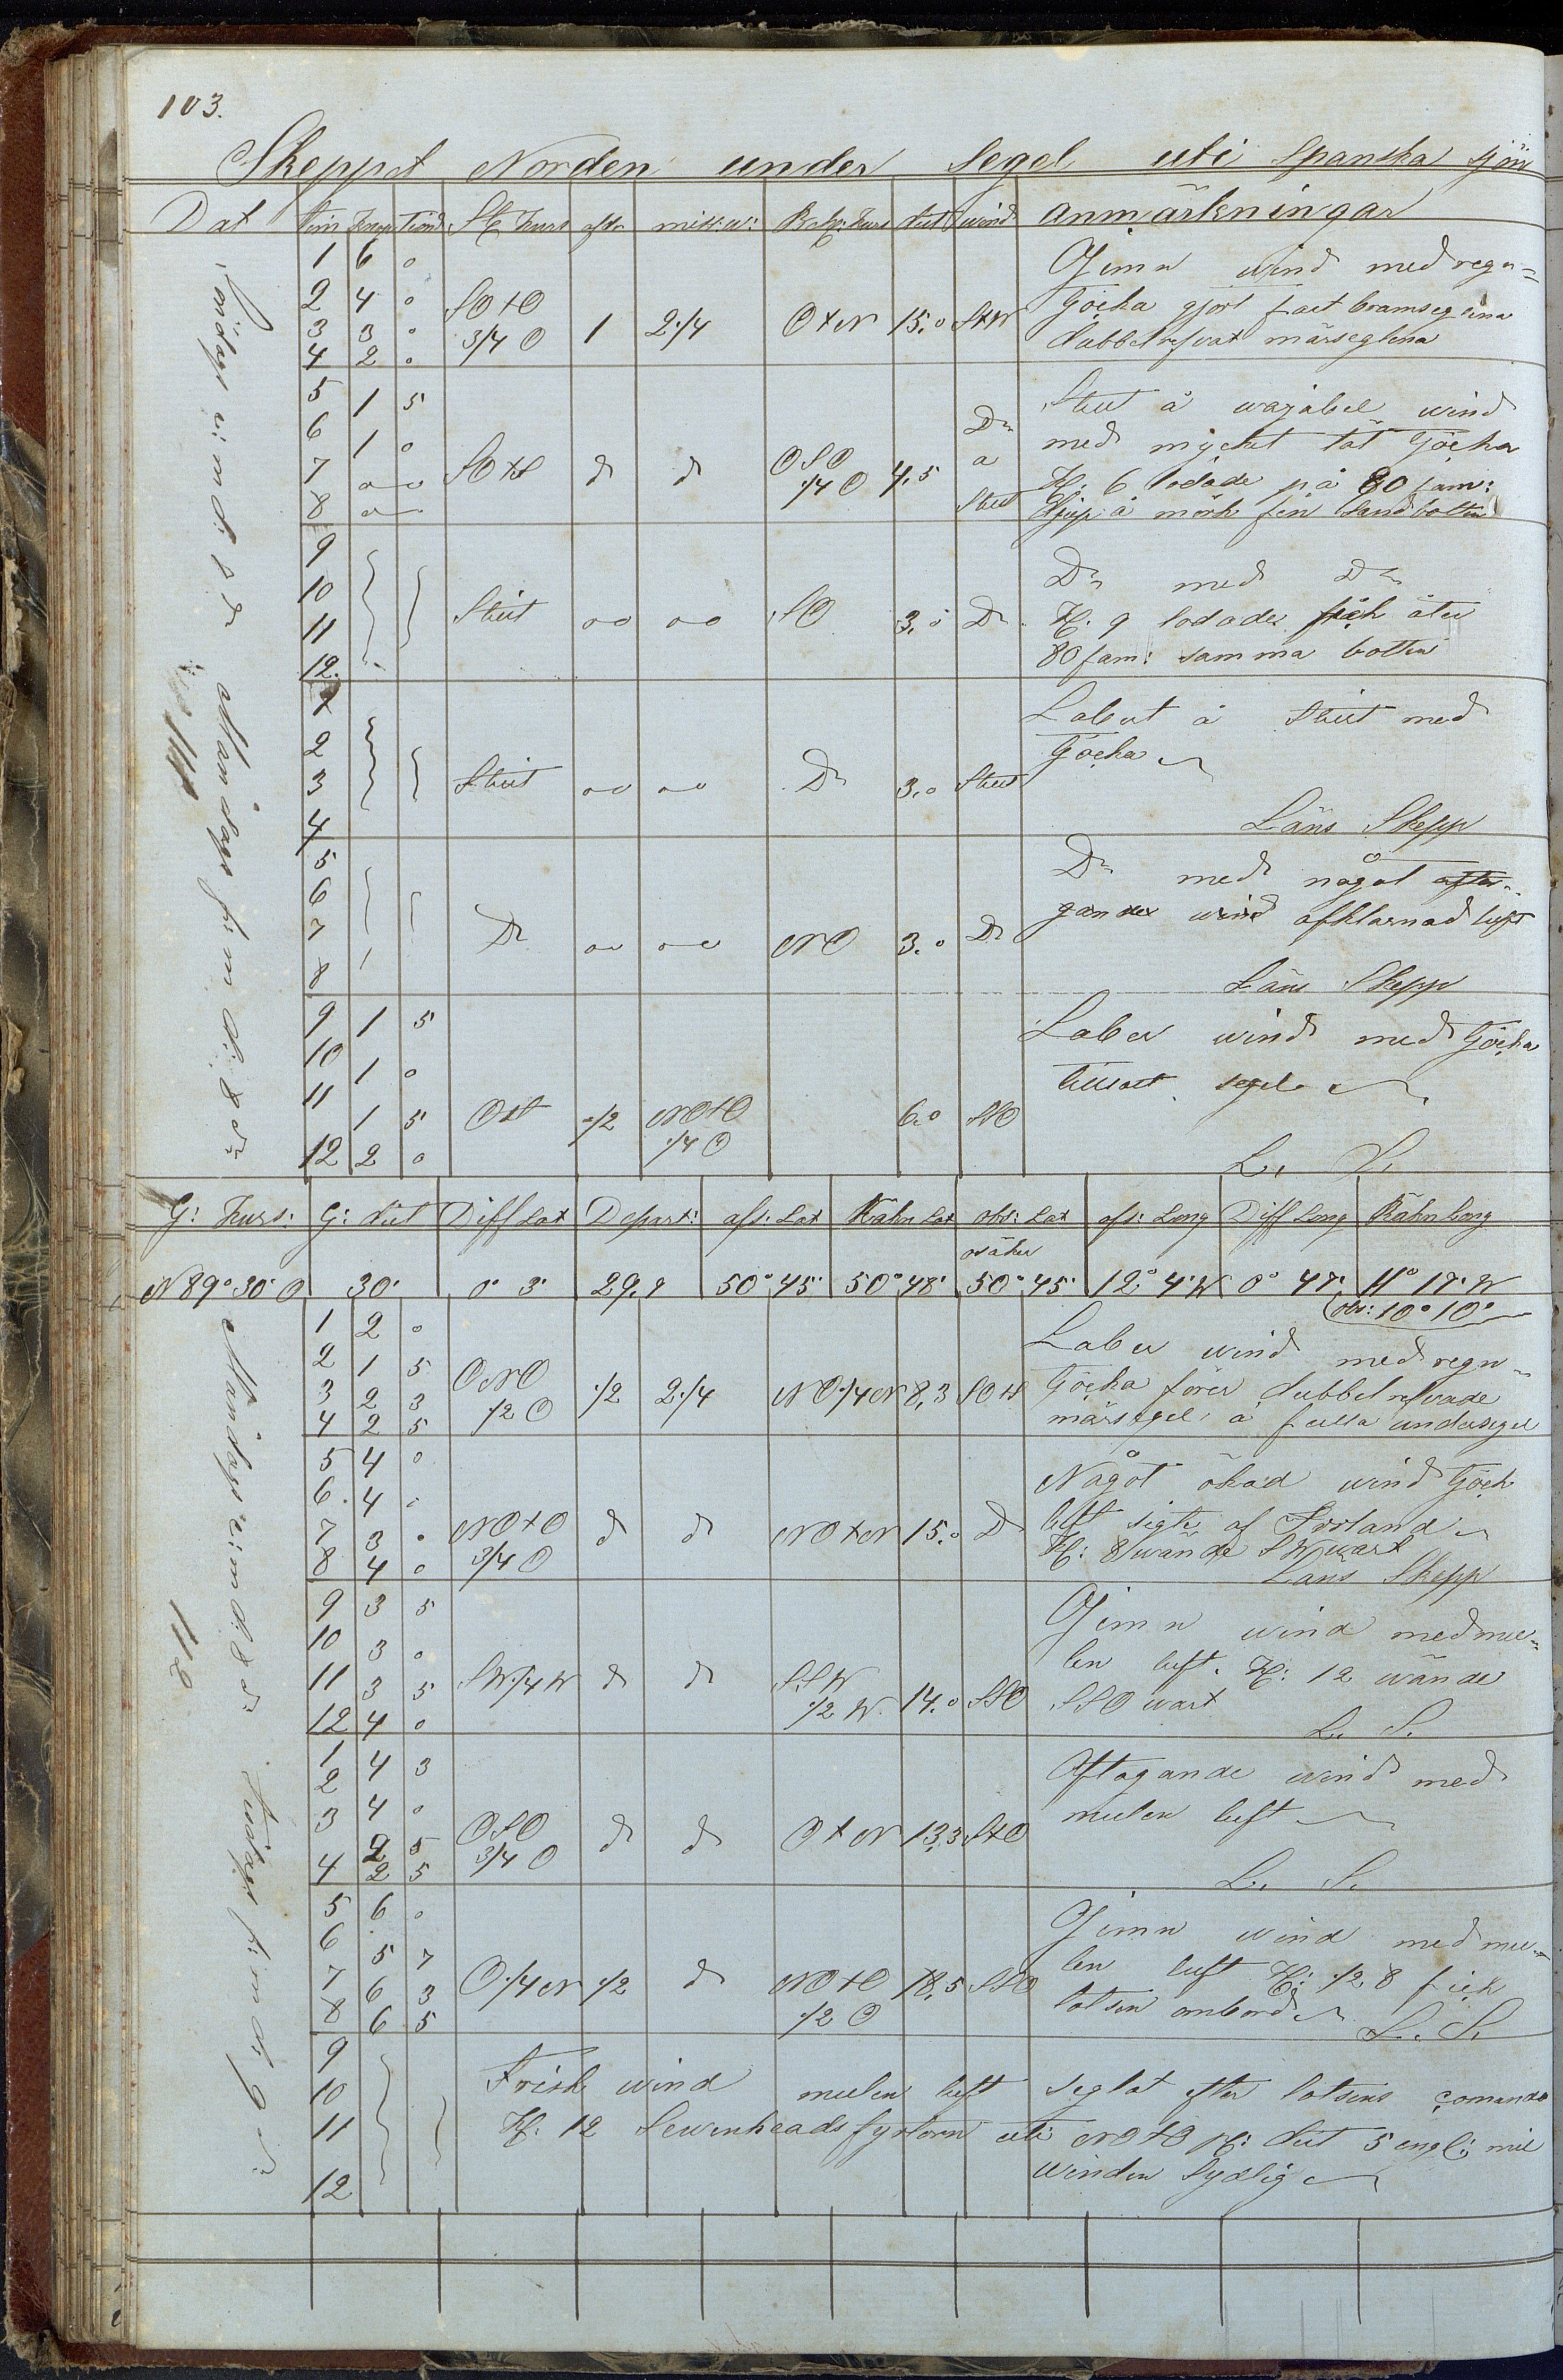 103.
Skeppet Norden under Segel uti Spanska sjön
Dat Tim Knop Tiond St Kurs afdr missw: Beh: Kurs dist wind anmärkningar
1 6 0 Jemn wind med regn=
2 4 0 SO t O Tjöcka gjort fast bramseglena
3 3 0 3/4 O 1 2 1/4 O t N 15.0 S t W dubbelrefvat märseglena
4 2 0
5 1 5 Stilt å varjabel wind
6 1 0 Do med myçket tät Tjöcka
7 0 0 SO t S d d OSO 1/4 O 4,5 a Kl. 6 lodade på 80 famr:
8 0 Stilt djup å mörk fin Sandbotten
9 Do med Do
10 Stilt 00 00 SO 3.0 Do Kl. 9 lodades fick åter
11 80 fam: samma botten
12.
1 Labert å Stilt med
2 Tjöcka
3 Stilt 00 00 Do 3.0 Stilt
4 Läns Skepp
5 Do med något afta-
6 gandes wind afklarnad luft
7 Do 00 00 NO 3.0 Do
8 Läns Skepp
9 1 5 Laber wind med Tjöcka
10 1 0 tillsatt segel
11 1 5 Ost 1/2 NO t O 1/4 O 6.0 SSO
12 2 0 L. S.
Söndags e:m d: 7 d:
Mandags f:m d: 8 d:
111
G: Kurs: G: dist Diff Lat Depart: afs: Lat Räkn Lat obs: Lat afs: Long Diff Long Räkn Long
osäker
N 89° 30' O 30' 0° 3' 29,9 50° 45' 50° 48' 50° 45' 12° 4' W 0° 47' 11° 17' W
obs: 10° 10'
1 2 0 Laber wind med regn-
2 1 5 ONO Tjöcka förer dubbelrefvade
3 2 3 1/2 O 1/2 2 1/4 NO 1/4 N 8,3 SO t S märsegel å fulla undersegel
4 2 5
5 4 0 Något ökad wind Tjöck
6 4 0 luft sigte af Irrland
7 3 0 NO t O 3/4 O d d NO t N 15.0 Do Kl: 8 wände SW wart
8 4 0 Läns Skepp
9 3 5 Jemn wind med mu=
10 3 0 len luft. Kl: 12 wände
11 3 5 SW 1/4 W d d SSW 1/2 W 14.0 SSO SSO wart
12 4 0 L. S.
1 4 3 Aftagande wind med
2 mulen luft
3 4 0 OSO 3/4 O d d O t N 13,3 S t O
2 5
4 2 5 L. S.
5 6 0 Jemn wind med mu-
6 5 7 len luft Kl: 1/2 8 fick
7 6 3 O 1/4 N 1/2 d NO t O 1/2 O 18,5 SSO lotsen ombord
8 6 5 L. S.
9 Frisk wind mulen luft seglat efter lotsens comando
10
11 Kl: 12 Sewenheads fyrtorn uti NO t O pK: dist 5 engl: mil
12 Winden Sydlig
Mandags e:m d: 8 d:
Tisdags f:m d: 9 d:
112